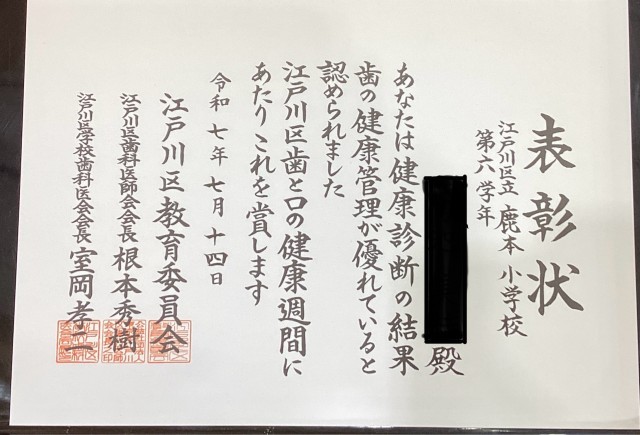 表彰状
江戸川区立 鹿本 小学校
第六学年
殿
あなたは健康診断の結果
歯の健康管理が優れていると
認められました
江戸川区歯と口の健康週間に
あたりこれを賞します
令和七年七月十四日
江戸川区教育委員会
江戸川区歯科医師会会長 根本秀樹
江戸川区学校歯科医会会長 室岡孝二